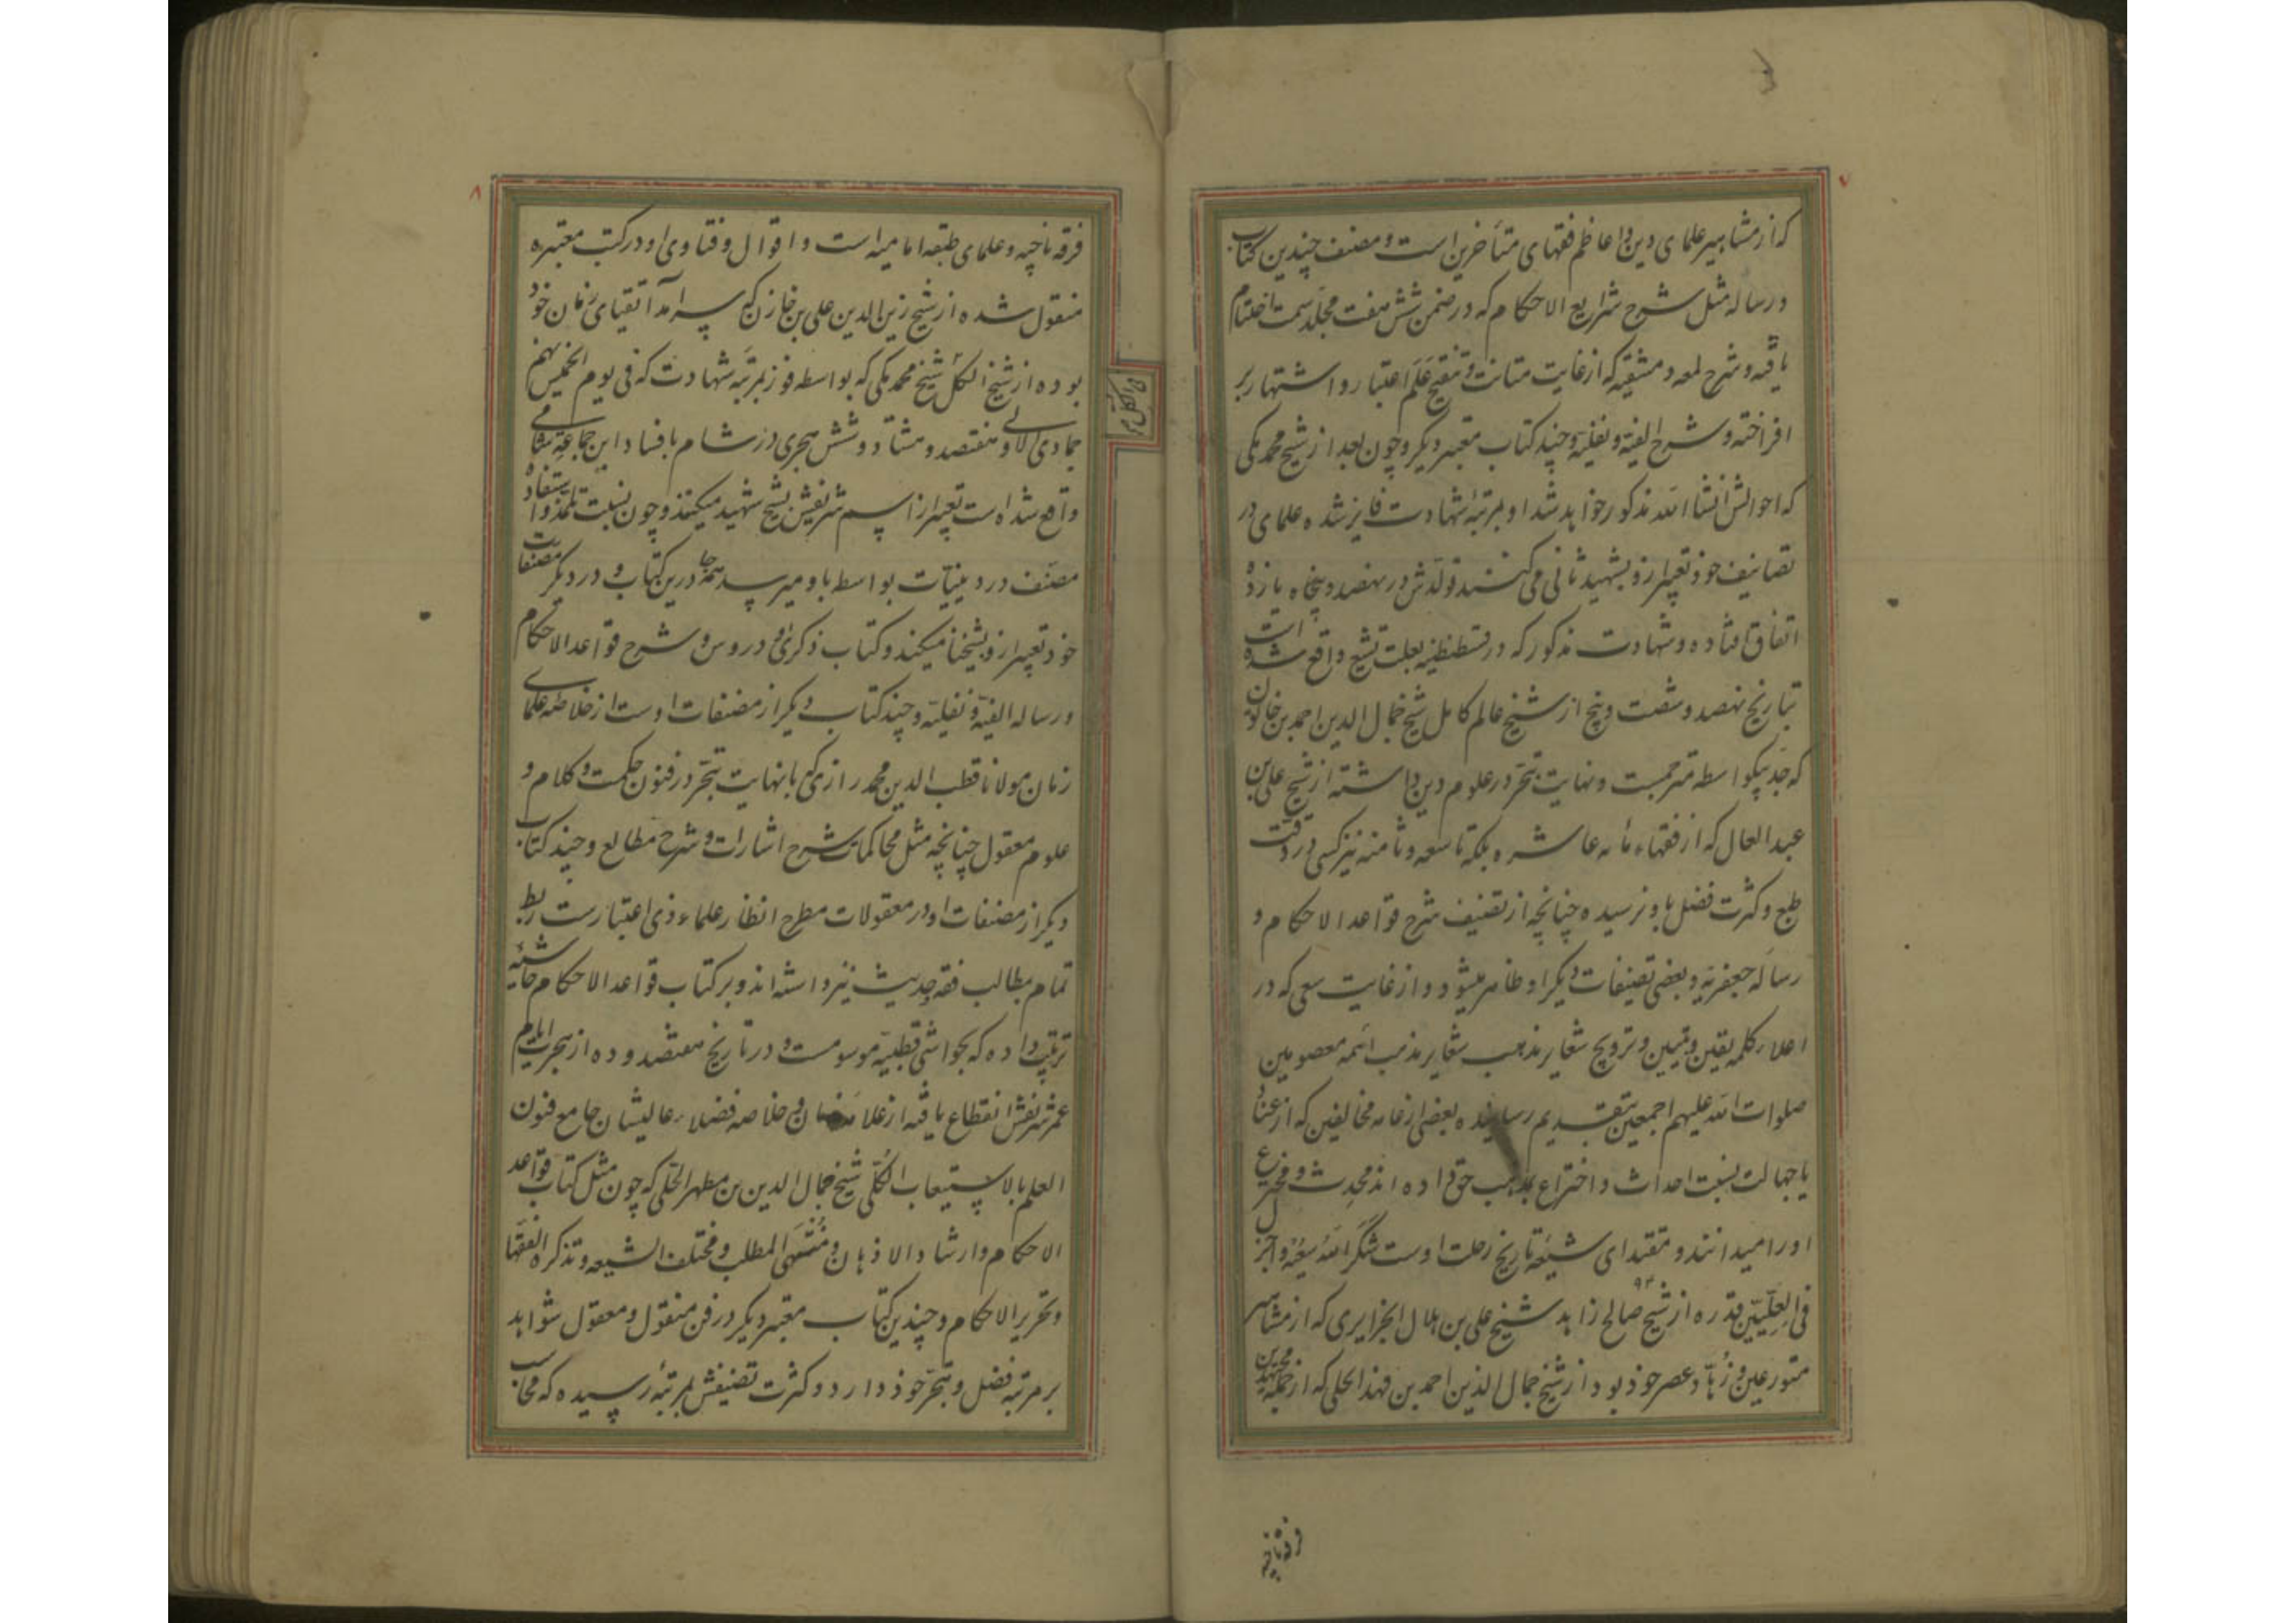 ۷
که از مشاهیر علمای دین و اعاظم فقهای متأخرین است و مصنف چندین کتاب
و رساله مثل شرح شرایع الاحکام که در ضمن شش هفت مجلد سمت اختتام
یافته و شرح لمعه دمشقیه که از غایت متانت و تنقیح علم اعتبار و اشتهار بر
افراخته و شرح الفیه و نفلیه و چند کتاب معتبر دیگر و چون بعد از شیخ محمد مکی
که احوالش انشا الله مذکور خواهد شد او بمرتبهٔ شهادت فایز شده علمای در
تصانیف خود تعبیر ازو بشهید ثانی می کنند تولدش در نهصد و پنجاه یازده
اتفاق افتاده و شهادت مذکور که در قسطنطنیه بعلت تشیع واقع شده است
بتاریخ نهصد و شصت و پنج از شیخ عالم کامل شیخ جمال الدین احمد بن خاتون
که جد بیکواسطه مترجمست و نهایت تبحر در علوم دین داشته از شیخ علی بن
عبد العال که از فقهاء مأه عاشره بلکه تاسعه و ثامنه نیز کسی در دقت
طبع و کثرت فضل باو نرسیده چنانچه از تصنیف شرح قواعد الاحکام و
رساله جعفریه و بعضی تصنیفات دیگر او ظاهر میشود و از غایت سعی که در
اعلاء کلمه یقین و تبیین و ترویج شعایر مذهب شعایر مذهب ائمه معصومین
صلوات الله علیهم اجمعین بتقدیم رسانیده بعضی از عامه مخالفین که از عناد
یا جهالت نسبت احداث و اختراع بمذهب حق داده اند محدث و مخترع
او را میدانند و مقتدای شیعه تاریخ رحلت اوست شکر الله سعیه و اجزل
فی العلیین قدره از شیخ صالح زاهد شیخ علی بن هلال الجزایری که از مشاهیر
متورعین و زهاد عصر خود بود از شیخ جمال الدین احمد بن فهد الحلی که از جمله مجتهدین
فرقه ناجیه
۸
فرقه ناجیه و علمای طبقه امامیه است و اقوال و فتاوی او در کتب معتبره
منقول شده از شیخ زین الدین علی بن خازن که سرآمد اتقیای زمان خود
بوده از شیخ الکل شیخ محمد مکی که بواسطه فوز بمرتبه شهادت که فی یوم الخمیس نهم
جمادی الاولی هفتصد و هشتاد و شش هجری در شام بافساد این جماعه شامی
واقع شده است تعبیر از اسم شریفش بشیخ شهید میکنند و چون نسبت تلمذ و استفاده
مصنف در دینیات بواسطه باو میرسد همه جا درین کتاب و در دیگر مصنفات
خود تعبیر ازو بشیخنا میکند و کتاب ذکری و دروس و شرح قواعد الاحکام
و رساله الفیه و نفلیه و چند کتاب دیگر از مصنفات اوست از خلاصه علمای
زمان مولانا قطب الدین محمد رازی که با نهایت تبحر در فنون حکمت و کلام و
علوم معقول چنانچه مثل محاکمات شرح اشارات و شرح مطالع و چند کتاب
دیگر از مصنفات او در معقولات مطرح انظار علماء ذی اعتبارست ربط
تمام بمطالب فقه حدیث نیز داشته اند و بر کتاب قواعد الاحکام حاشیه
ترتیب داده که بحواشی قطبیه موسومست و در تاریخ هفتصد و ده از هجرت ایام
عمر شریفش انقطاع یافته از و خلاصه فضلاء عالیشان جامع فنون
العلم بالاستیعاب الکلی شیخ جمال الدین بن مطهر الحلی که چون مثل کتاب قواعد
الاحکام و ارشاد الاذهان و منتهی المطلب و مختلف الشیعه و تذکره الفقها
و تحریر الاحکام و چندین کتاب معتبر دیگر در فن منقول و معقول شواهد
بر مرتبه فضل و تبحر خود دارد و کثرت تصنیفش بمرتبهٔ رسیده که محاسب